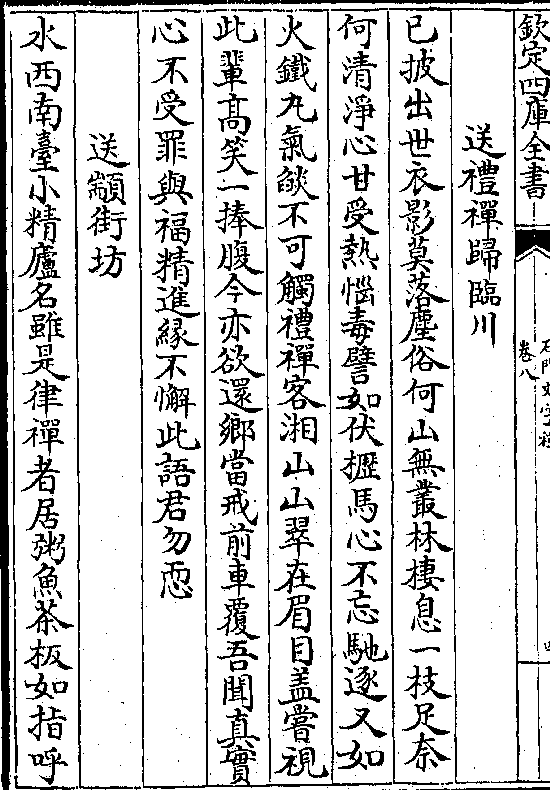 欽定四庫全書
石門文字禪
卷八
四
送禮禪歸臨川
已披出世衣影莫落塵俗何山無叢林棲息一枝足奈
何清淨心甘受熱惱毒譬如伏櫪馬心不忘馳逐又如
火鐵丸氣燄不可觸禮禪客湘山山翠在眉目盖嘗視
此輩髙笑一捧腹今亦欲還鄉當戒前車覆吾聞真實
心不受罪與福精進緣不懈此語君勿恧
送顓街坊
水西南臺小精廬名雖是律禪者居粥魚茶板如指呼